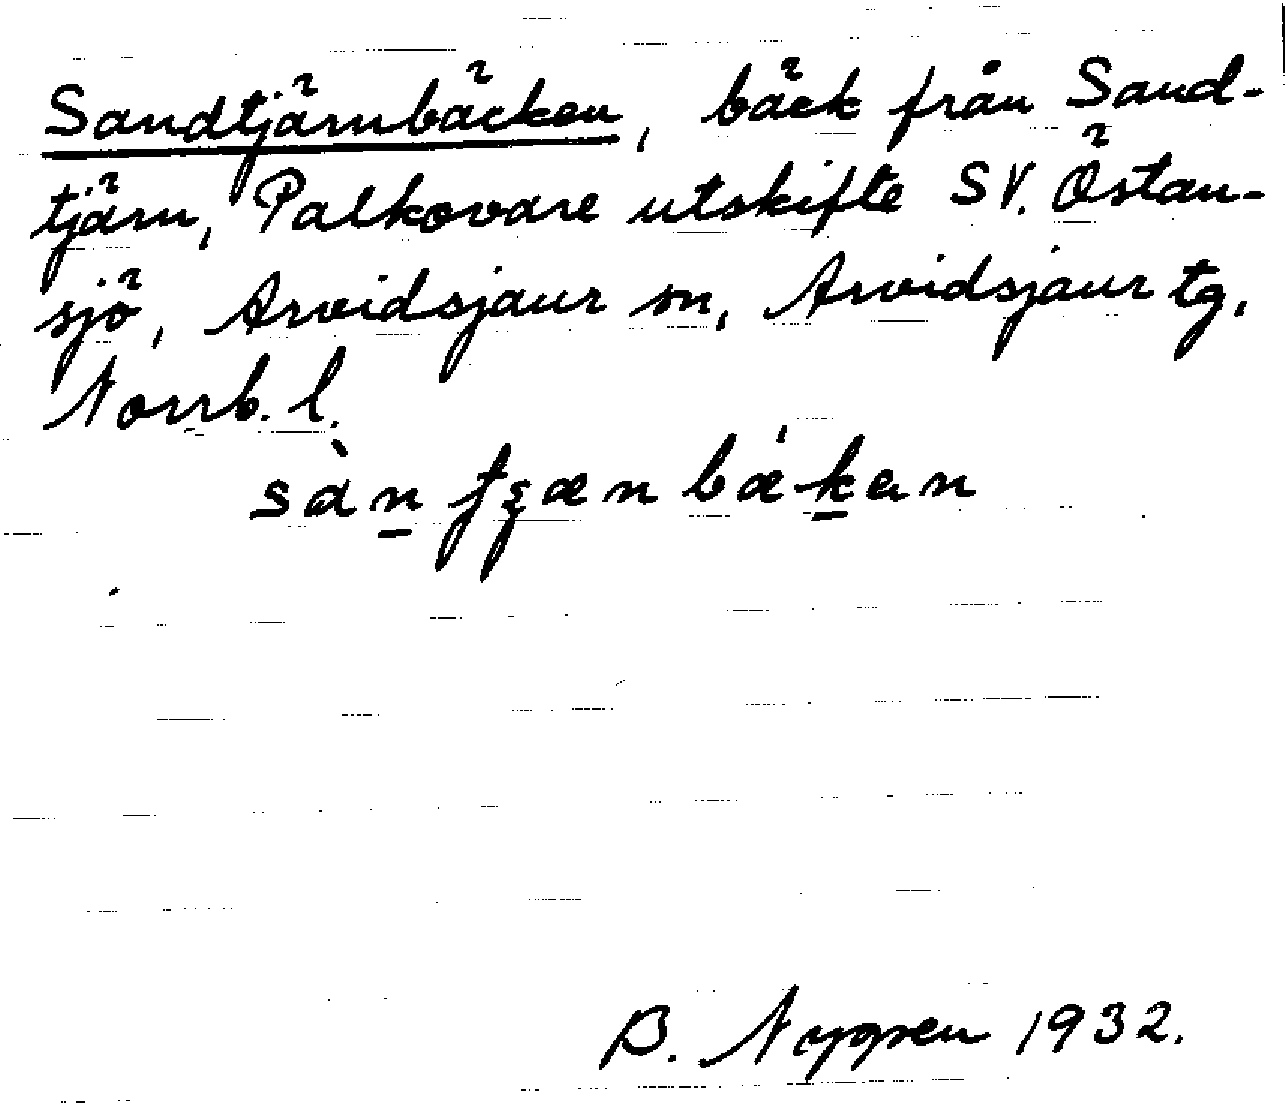 Sandtjärnbäcken, bäck från Sand-
tjärn, Palkovare utskifte SV. Östan-
sjö, Arvidsjaur sn, Arvidsjaur tg,
Norrb. l.
B. Nygren 1932.